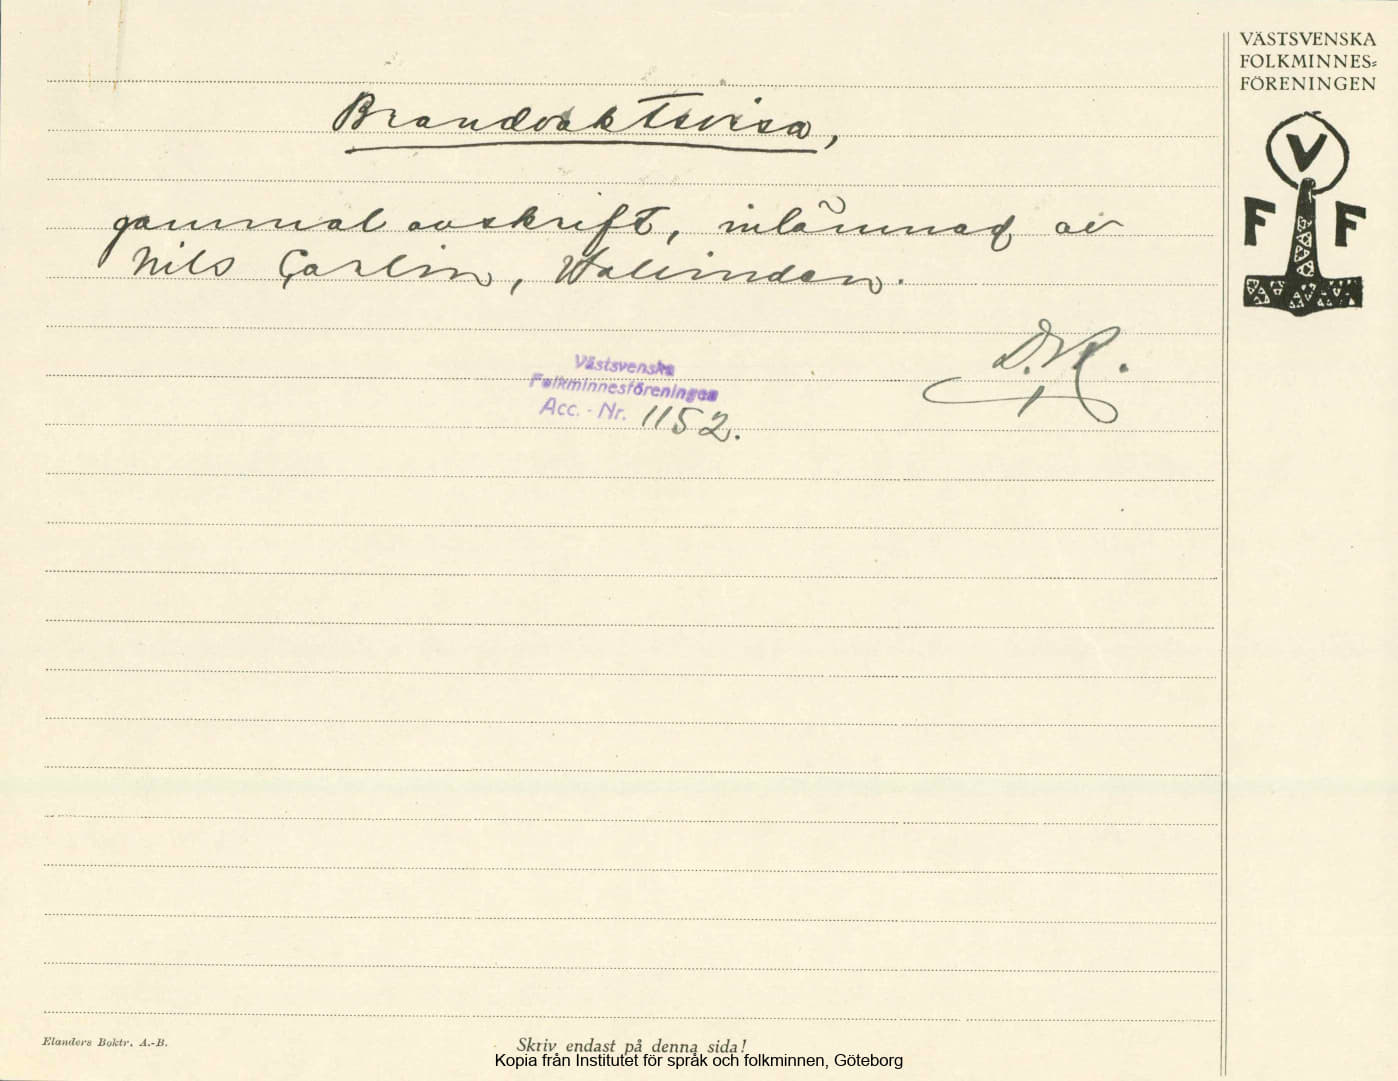 VÄSTSVENSKA
FOLKMINNES=
FÖRENINGEN
V
F F
Brandvaktsvisa,
gammal avskrift, inlämnad av
Nils Carlin,
D.A.
Västsvenska
Folkminnesföreningen
Acc. - Nr. 1152.
Elanders Boktr. A.-B.
Skriv endast på denna sida!
Kopia från Institutet för språk och folkminnen, Göteborg